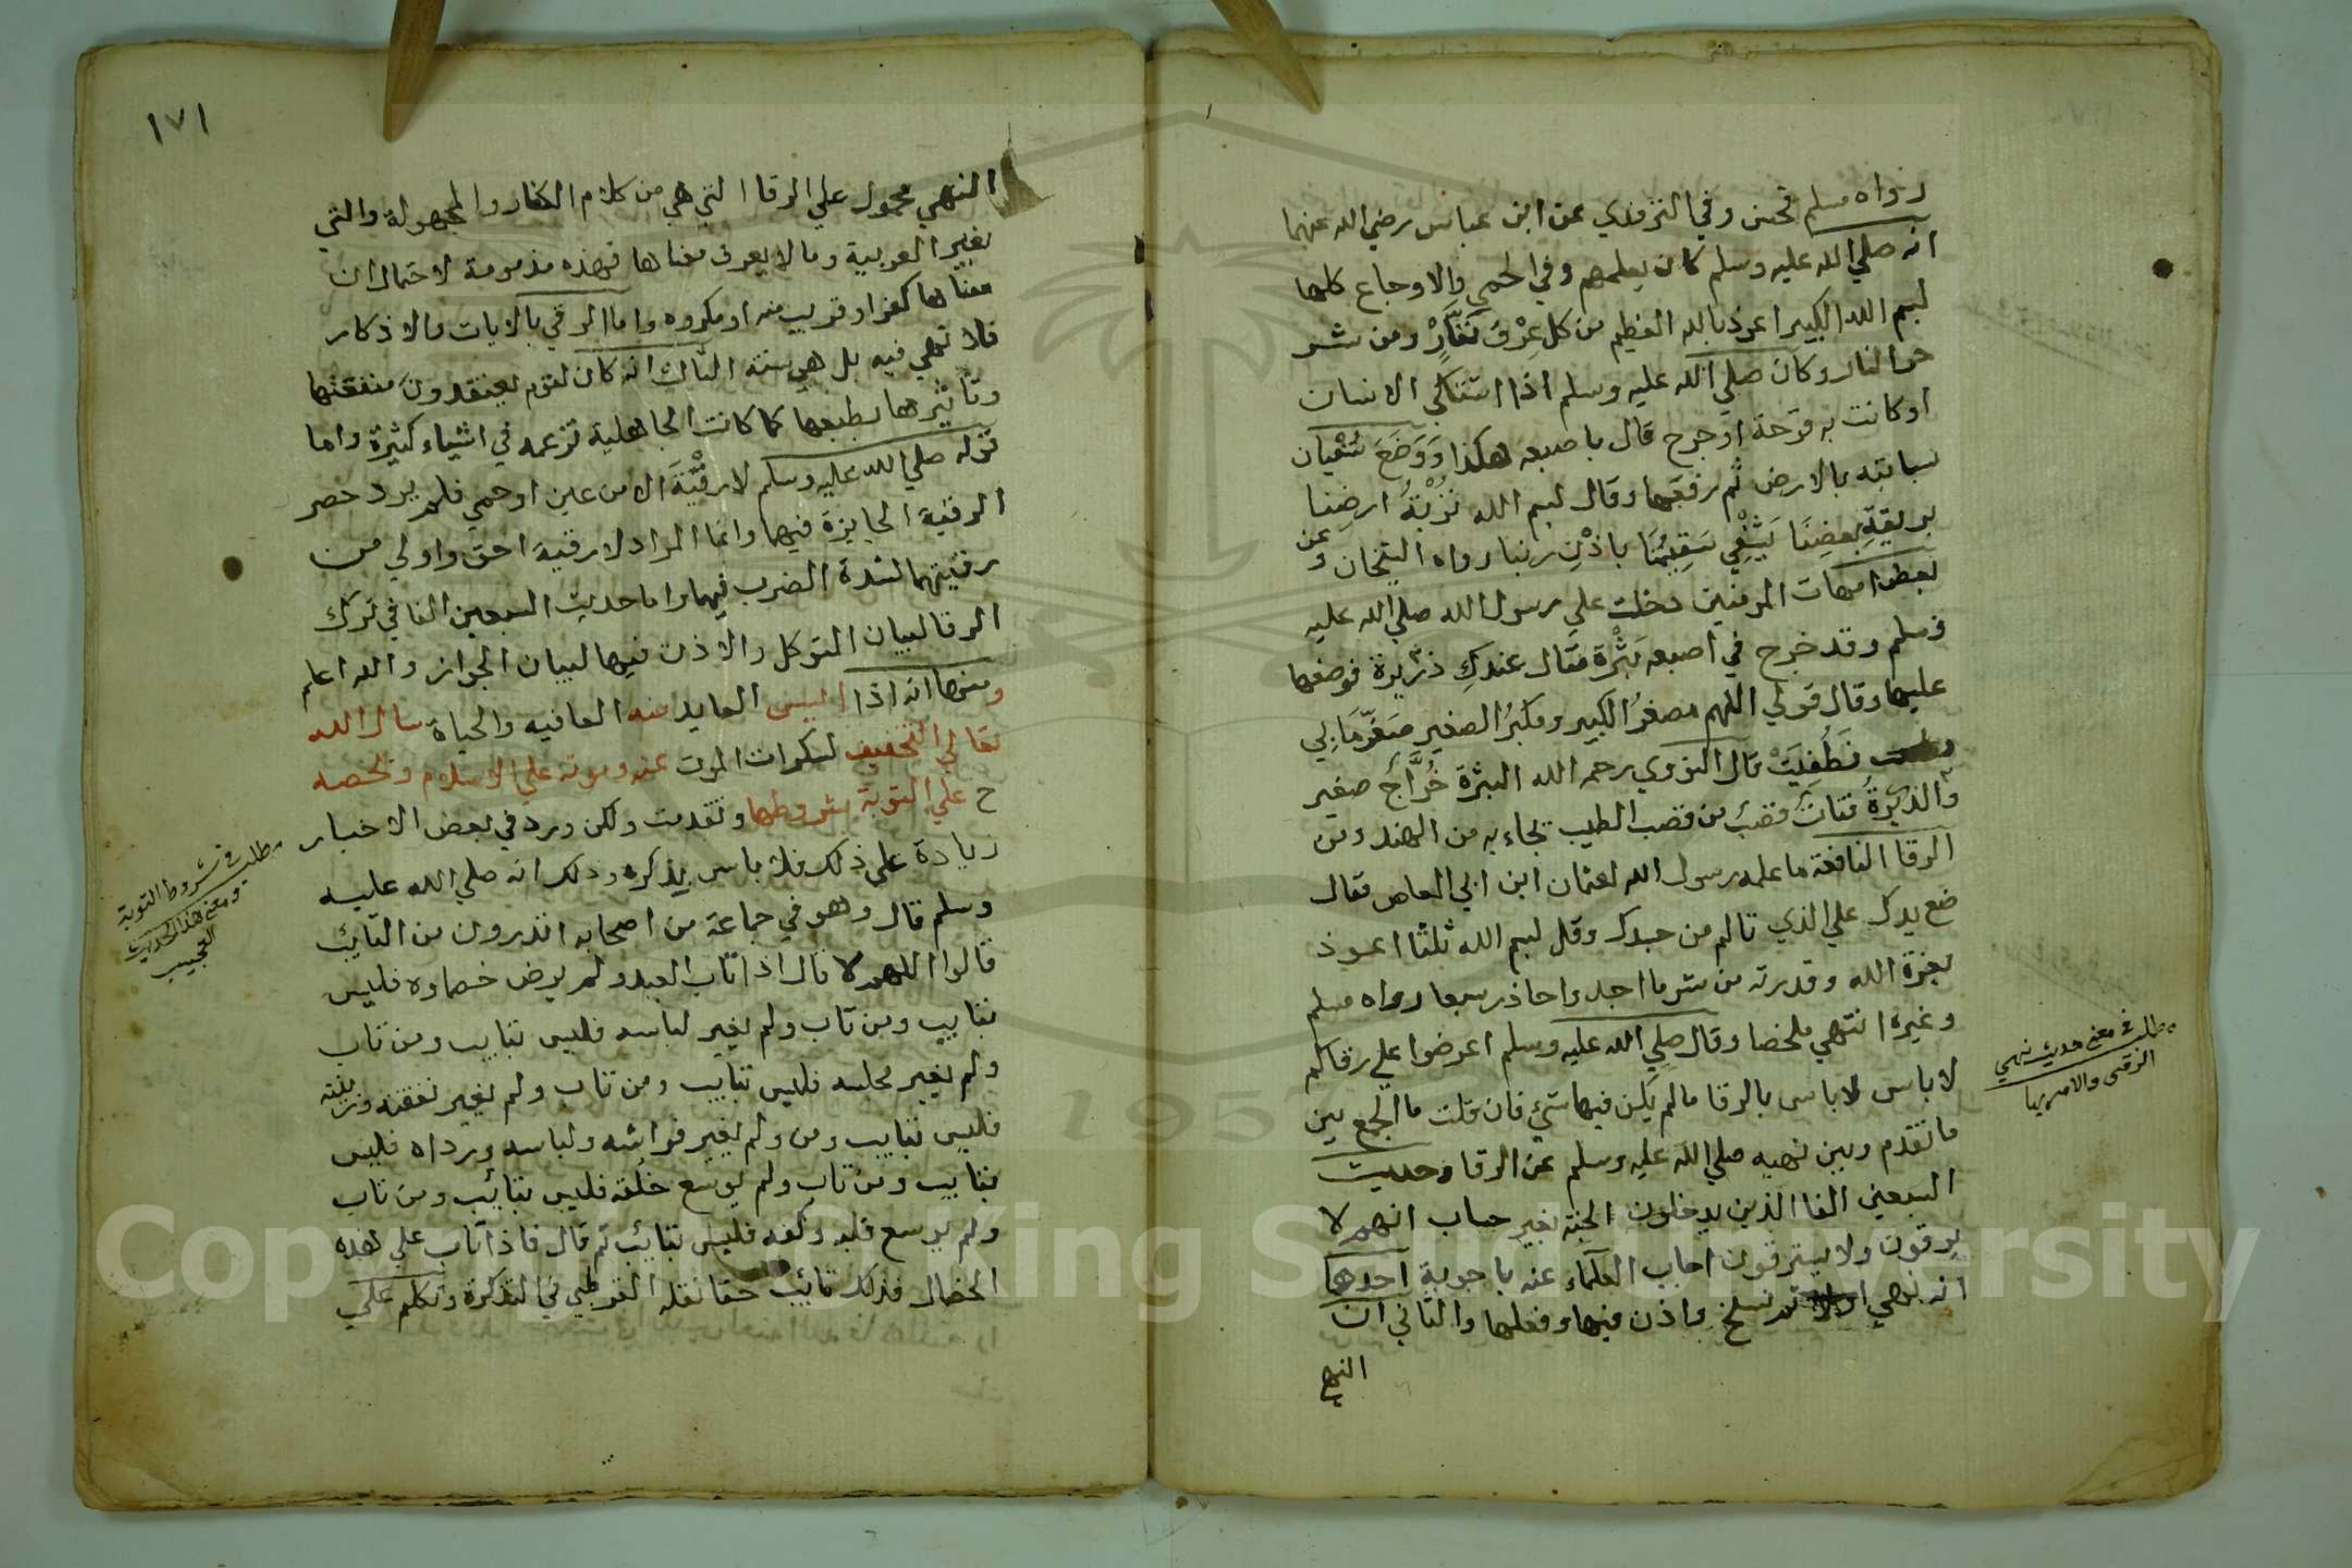 رواه مسلم تحسن وفي الترمذي عن ابن عباس رضي الله عنهما
انه صلي الله عليه وسلم كان يعلمهم وفي الحمي والاوجاع كلها
لبسم الله الكبير اعوذ بالله العظيم من كل عِرْقٍ نَعَّارٍ ومن شر
حر النار وكان صلي الله عليه وسلم اذا اشتكي الانسان
او كانت به قرحة او جرح قال باصبعه هكذا وَوَضَعَ سُفْيان
سبابته بالارض ثم رفعها وقال بسم الله تُرْبَةُ ارضِنا
بريقةِ بعضِنَا يَشْفِي سَقِيمُنَا باذْنِ ربنا رواه الشيخان وعن
بعض امهات المومنين دخلت علي رسول الله صلي الله عليه
وسلم وقد خرج في اصبعه بَثْرَة فقال عندكِ ذَرِيرة فوضعها
عليها وقال قولي اللهم مصغرُ الكبير ومكبرُ الصغير صَغِّرْ مَا بِي
فَطُفِيَتْ قال النووي رحمه الله البثرة خُرَّاجُ صغير
والذريرةُ فتاتُ قصبَ من قصب الطيب يجاء به من الهند ومن
الرقا النافعة ما علمه رسول الله لعثمان ابن ابي العاص فقال
ضع يدك علي الذي تالم من جسدك وقل لبسم الله ثلثا اعوذ
بعزة الله وقدرته من شر ما اجد واحاذر سبعا رواه مسلم
وغيره انتهي ملخصا وقال صلي الله عليه وسلم اعرضوا علي رقاكم
لا باس لا باس بالرقا ما لم يكن فيها شئ فان قلت ما الجمع بين
ما تقدم وبين نهيه صلي الله عليه وسلم عن الرقا وحديث
السبعين الفا الذين يدخلون الجنة بغير حساب انهم لا
يرقون ولا يسترقون اجاب العلماء عنه باجوبة احدها
انه نهي اولا ثم نسخ واذن فيها وفعلها والثاني ان
النهي
مطلب في معني حديث نهي
الرقى والامر بها
١٧١
النهي محمول علي الرقا التي هي من كلام الكفار والمجهولة والتي
بغير العربية وما لا يعرف معناها فهذه مذمومة لاحتمال ان
معناها كفر او قريب منه او مكروه واما الرقي بالايات والاذكار
فلا نهي فيه بل هي سنة الثالث انه كان لقوم يعتقدون منفعتها
وتاثيرها بطبعها كما كانت الجاهلية تزعمه في اشياء كثيرة واما
قوله صلي الله عليه وسلم لا رُقْيَةَ الا من عين او حمي فلم يرد حصر
الرقية الجايزة فيهما وانما المراد لا رقية احق واولي من
رقيتهما لشدة الضرب فيهما واما حديث السبعين الفا في ترك
الرقا لبيان التوكل والاذن فيها لبيان الجواز والله اعلم
ومنها انه اذا اليس العايد منه العافيه والحياة سال الله
تعالي التخفيف لسكرات الموت عنه وموته علي الاسلام وتحصه
ح علي التوبة بشروطها وتقدمت ولكن ورد في بعض الاخبار
زيادة علي ذلك فلا باس بذكره وذلك انه صلي الله عليه
وسلم قال وهو في جماعة من اصحابه اتدرون من التائب
قالوا اللهم لا قال اذا تاب العبد ولم يرض خصماوه فليس
بتايب ومن تاب ولم يغير لباسه فليس بتايب ومن تاب
ولم يغير مجلسه فليس بتايب ومن تاب ولم يغير نفقته وزينته
فليس بتايب ومن ولم يغير فراشه ولباسه ورداه فليس
بتايب ومن تاب ولم يوسع خُلُقه فليس بتائب ومن تاب
ولم يوسع قلبه وكفه فليس بتائب ثم قال فاذا تاب علي هذه
الخصال فذلك تائب حقا نقله القرطبي في التذكرة وتكلم علي
مطلب في شروط التوبة
ومعني هذا الحديث
العجيب
Copyright © King Saud University
1957